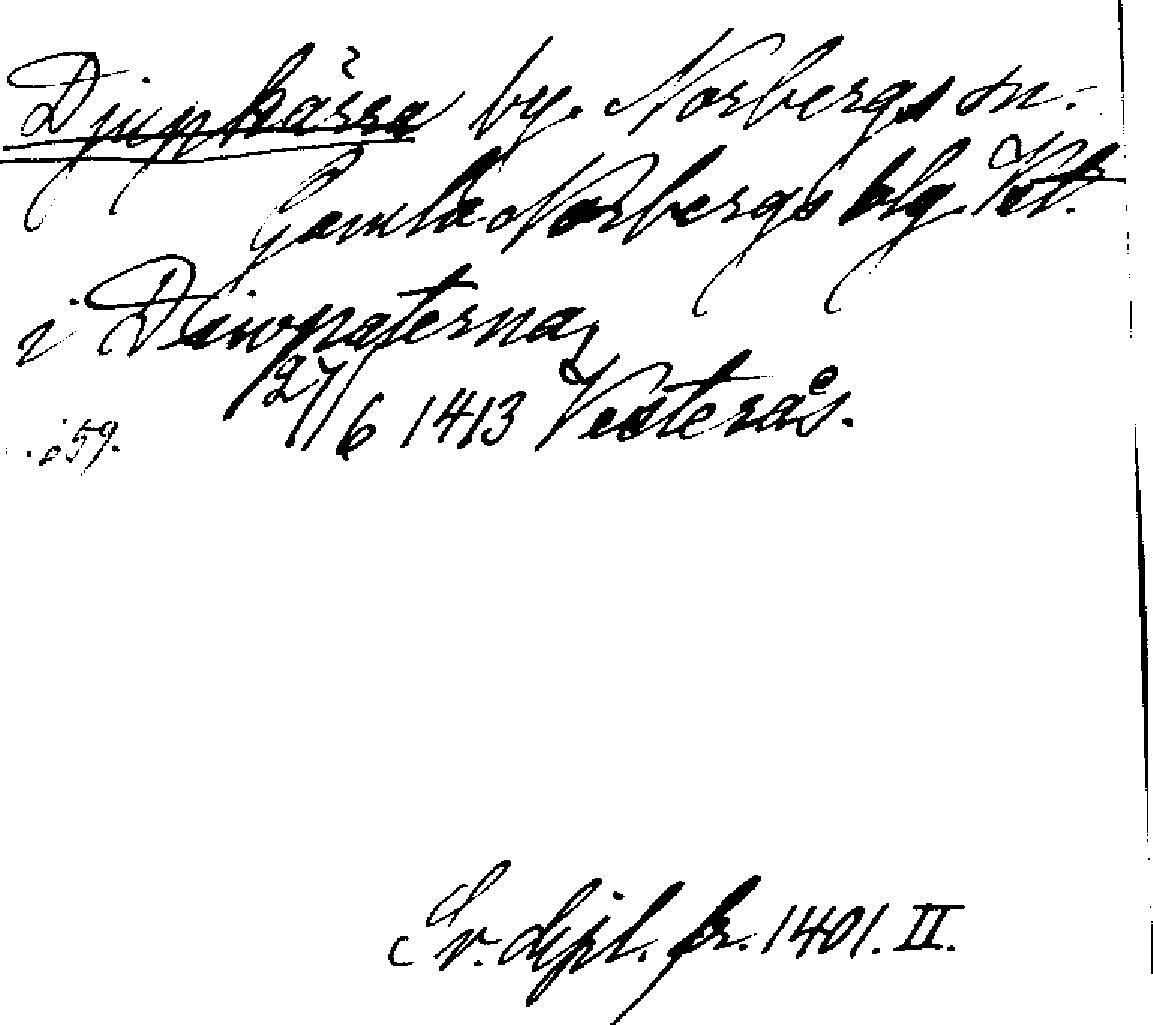 Djupkärra by. Norbergs sn.
Gamla Norbergs blg. Vstm.
i Diwpaterna,
27/6 1413 Vesterås.
59.
Sv. dipl. fr. 1401. II.